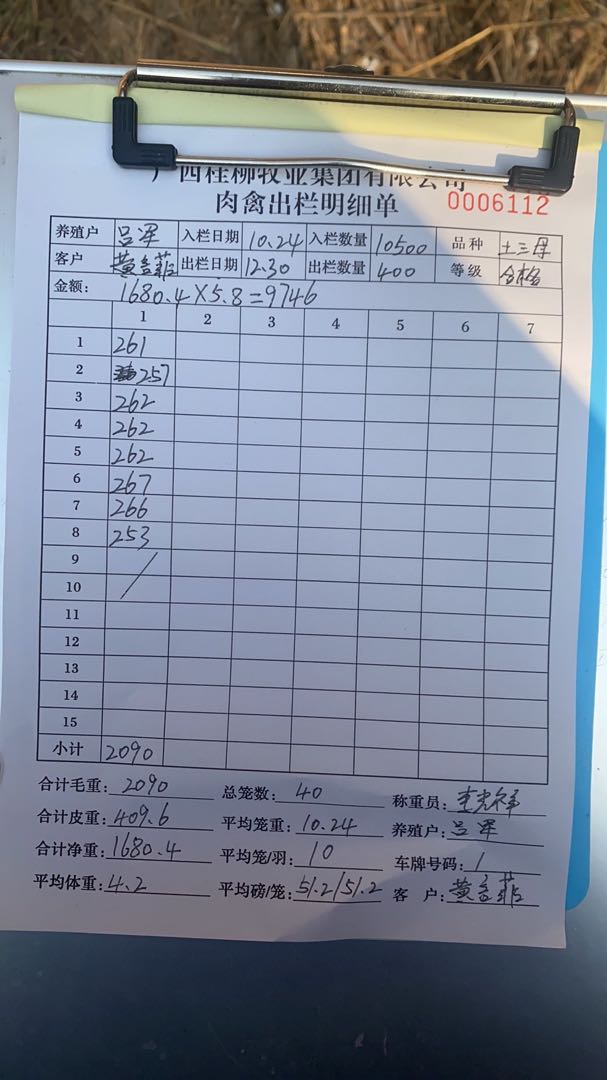 广西桂柳牧业集团有限公司
肉禽出栏明细单 0006112
养殖户 吕军 入栏日期 10.24 入栏数量 10500 品种 土三母
客户 出栏日期 12.30 出栏数量 400 等级 合格
金额: 1680.4×5.8=9746
1 2 3 4 5 6 7
1 261
2 257
3 262
4 262
5 262
6 267
7 266
8 253
9 /
10
11
12
13
14
15
小计 2090
合计毛重: 2090 总笼数: 40 称重员:
合计皮重: 409.6 平均笼重: 10.24 养殖户: 吕军
合计净重: 1680.4 平均笼/羽: 10 车牌号码: /
平均体重: 4.2 平均磅/笼: 51.2/51.2 客 户: